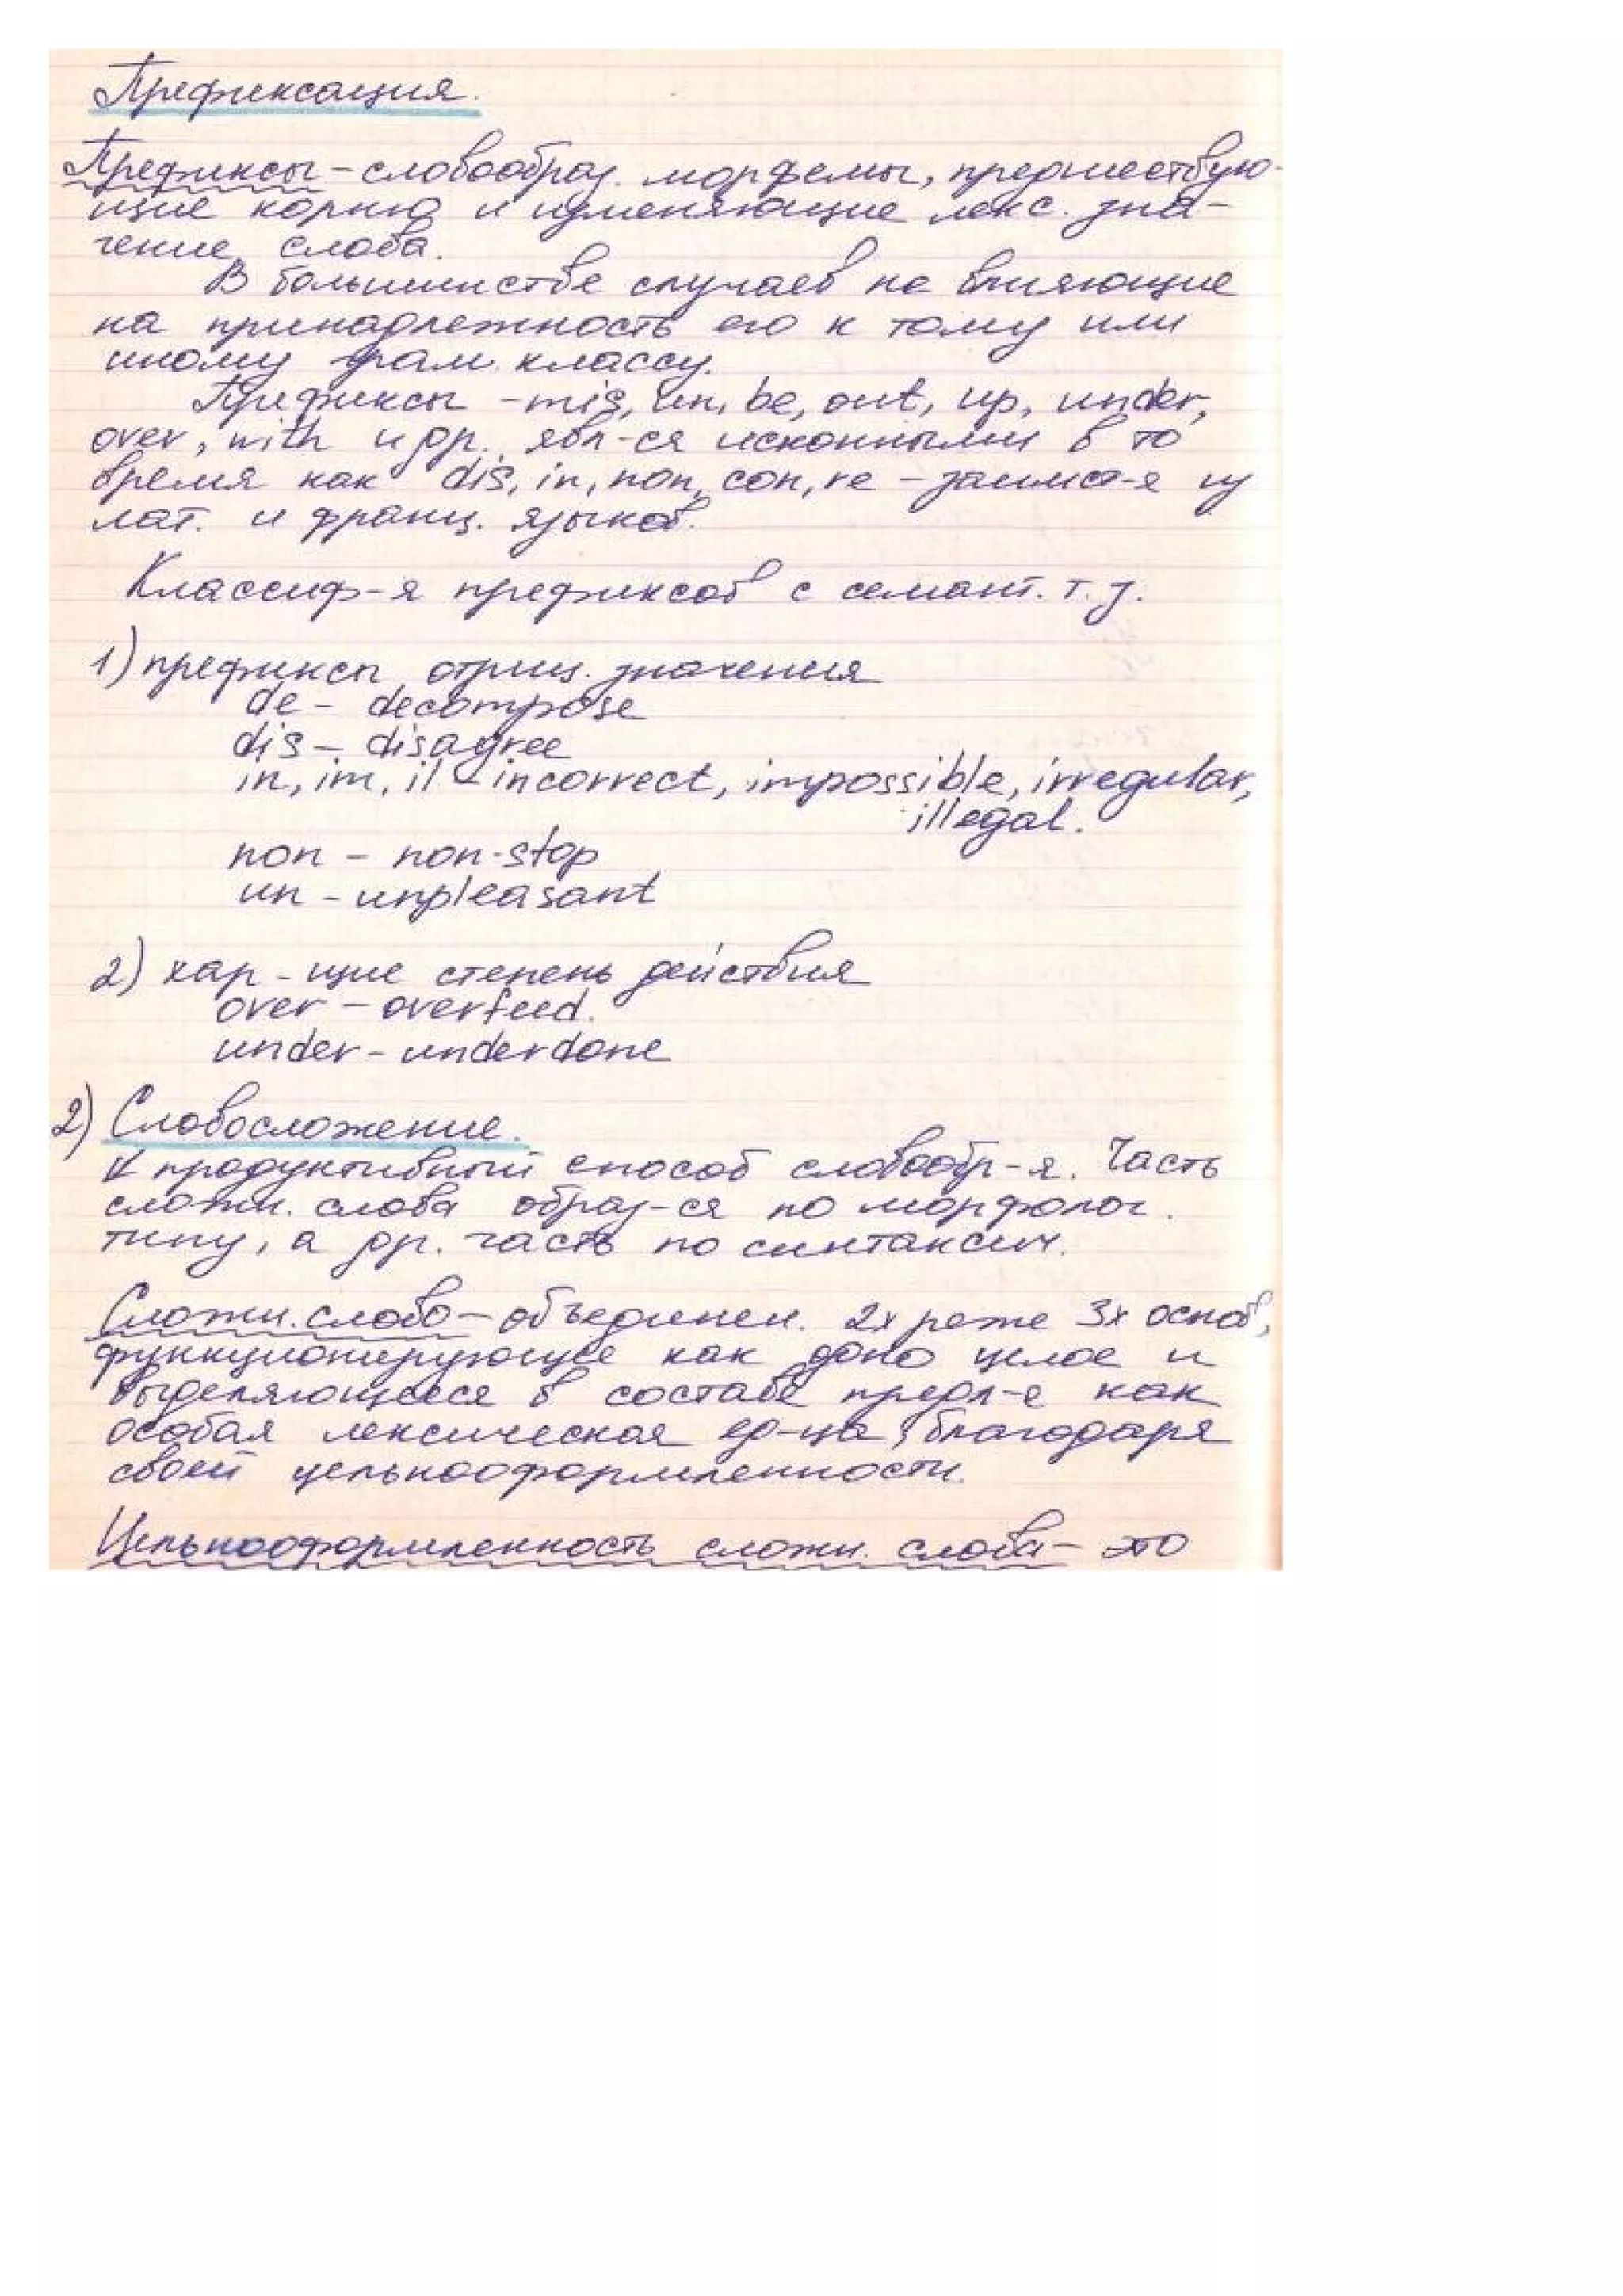 Префиксация.
Префиксы - словообраз. морфемы, предшествую-
щие корню и изменяющие лекс. зна-
чение слова.
В большинстве случаев не влияющие
на принадлежность его к тому или
иному грам. классу.
Префиксы - mis, un, be, out, up, under,
over, with и др. явл-ся исконными в то
время как dis, in, non, con, re - заимст-е из
лат. и франц. языков.
Классиф-я префиксов с семант. т. з.
1) префиксы отриц. значения
de - decompose
dis - disagree
in, im, il - incorrect, impossible, irregular,
illegal.
non - non-stop
un - unpleasant
2) хар-щие степень действия
over - overfeed.
under - underdone
2) Словосложение.
V продуктивный способ словообр-я. Часть
сложн. слова образ-ся по морфолог.
типу, а др. часть по синтаксич.
Сложн. слово - объединен. 2х реже 3х основ,
функционирующее как одно целое и
выделяющееся в составе предл-е как
особая лексическая ед-ца, благодаря
своей цельнооформленности.
Цельнооформленность сложн. слова - это